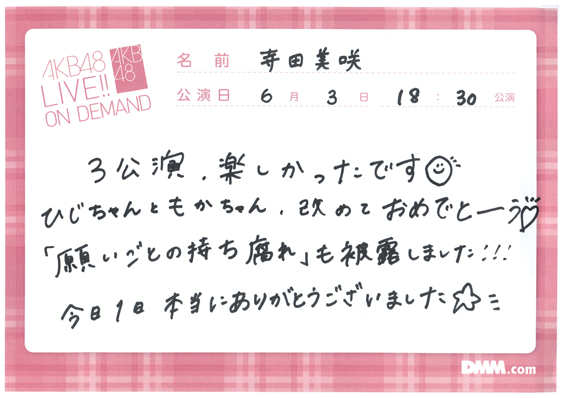 AKB48
LIVE!!
ON DEMAND
AKB
48
名前 寺田美咲
公演日 6月3日 18:30公演
3公演、楽しかったです
ひじちゃんともかちゃん、改めておめでとーう♡
「願いごとの持ち腐れ」も被露しました!!!
今日1日本当にありがとうございました☆
DMM.com